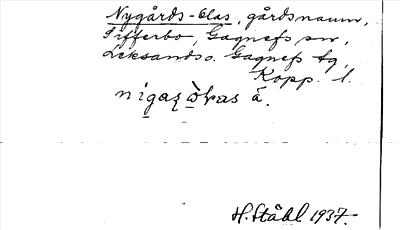 Nygårds-Olas, gårdsnamn,
Tifferbo, Gagnefs sn,
Leksands o. Gagnefs tg,
Kopp. l.
å.
H. Ståhl 1937.